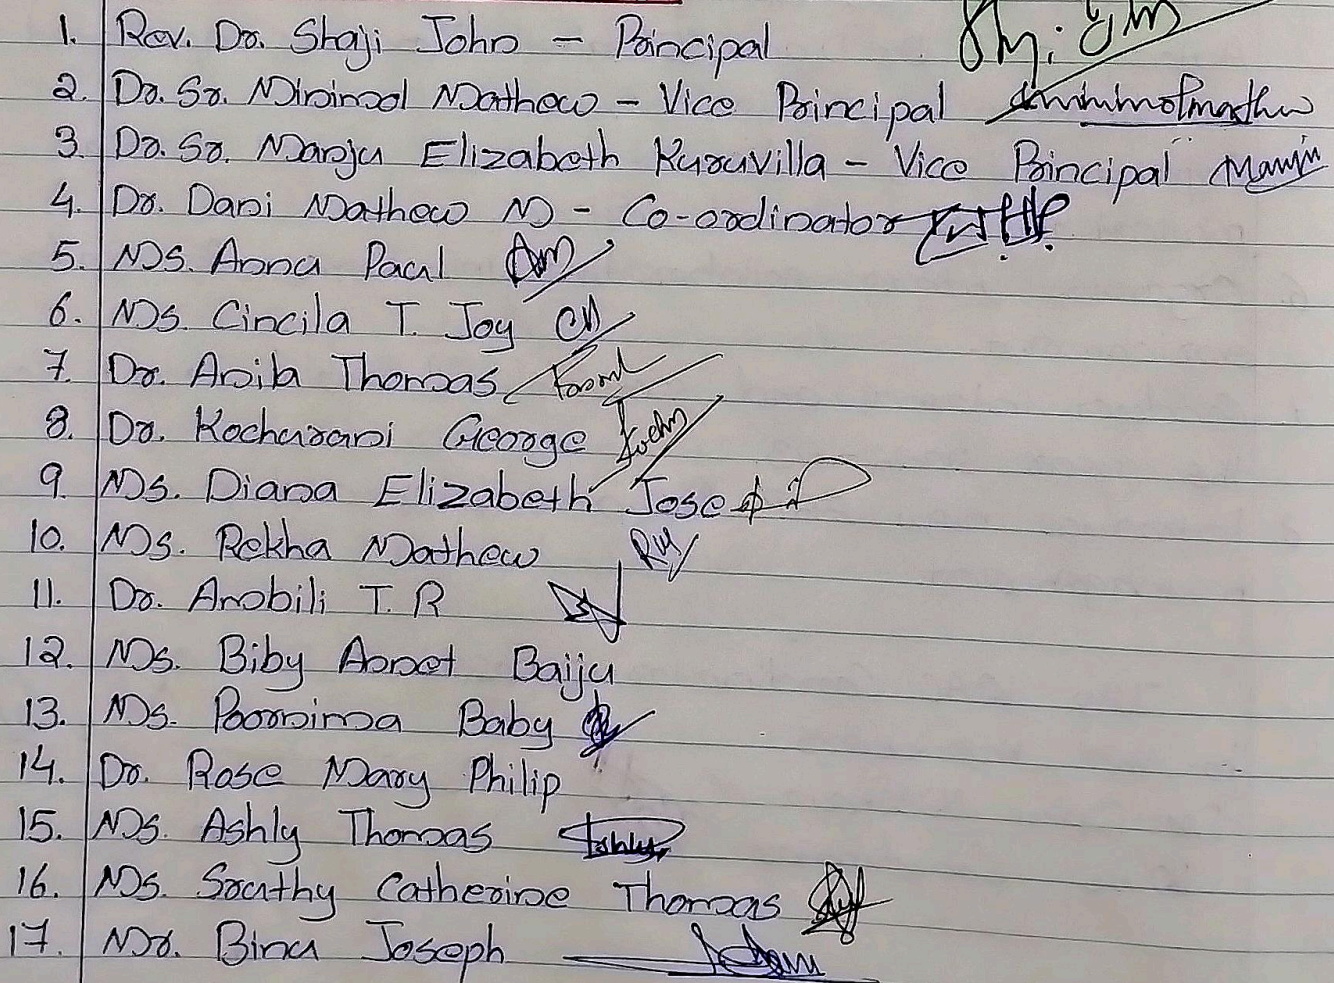 1. Rev. Dr. Shaji John - Principal
2. Dr. Sr. Minimol Mathew - Vice Principal
3. Dr. Sr. Manju Elizabeth Kuruvilla - Vice Principal Manju
4. Dr. Dani Mathew M - Co-ordinator
5. Ms. Anna Paul
6. Ms. Cincila T. Joy
7. Dr. Anila Thomas
8. Dr. Kochurani George
9. Ms. Diana Elizabeth Jose
10. Ms. Rekha Mathew
11. Dr. Ambili T. R
12. Ms. Biby Annet Baiju
13. Ms. Poornima Baby
14. Dr. Rose Mary Philip
15. Ms. Ashly Thomas Ashly
16. Ms. Sruthy Catherine Thomas
17. Mr. Binu Joseph